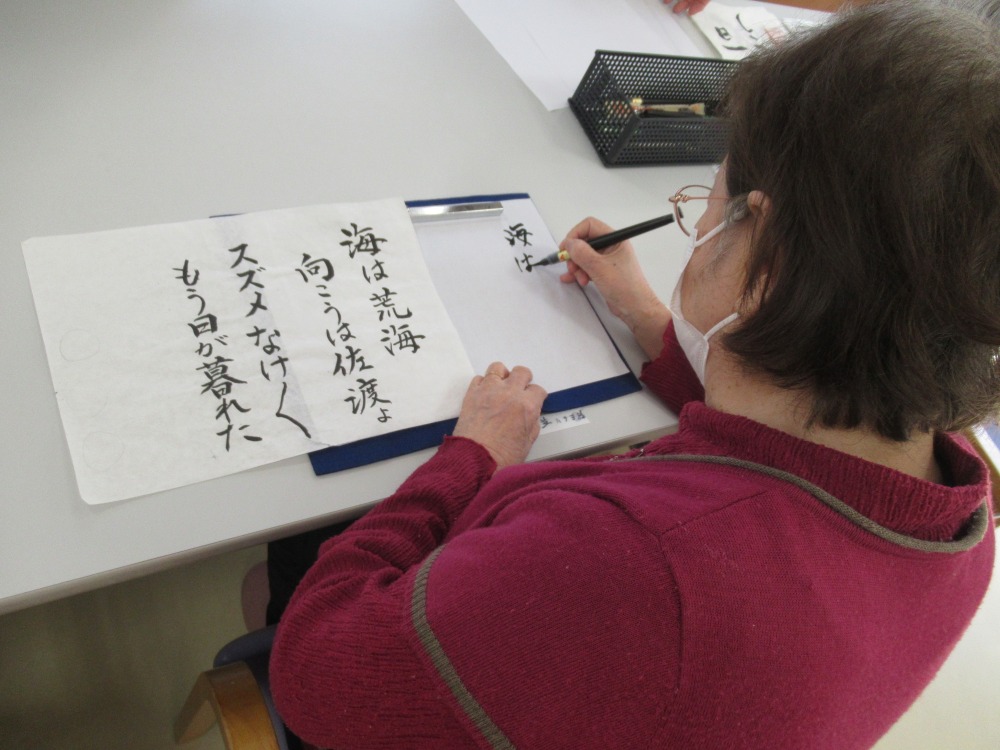 海は荒海
向こうは佐渡よ
スズメなけ〱
もう日が暮れた
海は